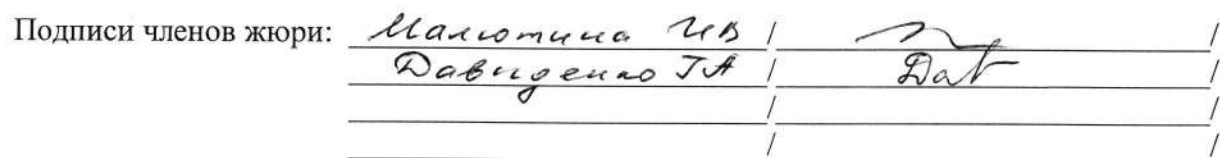 Подписи членов жюри: Малютина ИВ / /
Давиденко ГА / Dav /
/ /
/ /